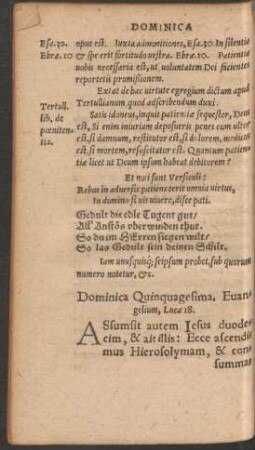 DOMINICA
Esa.30. opus est. Iuxta admonitiones, Esa.30 In silentio
Ebræ.10 & spe erit fortitudo vestra. Ebræ.10. Patientia
nobis necessaria est, ut voluntatem Dei facientes
reportetis promißionem.
Extat de hac virtute egregium dictum apud
Tertull. Tertullianum quod adscribendum duxi:
lib. de Satis idoneus, inquit patientiæ sequester, Deus
pœniten- est, Si enim iniuriam deposueris penes eum ultor
tia. est, si damnum, restitutor est, si dolorem, medicus
est, si mortem, resuscitator est. Quantum patien-
tiæ licet ut Deum ipsum habeat debitorem?
Et noti sunt Versiculi:
Rebus in adversis patiens terit omnia virtus,
In domino si vis vivere, disce pati.
Gedult die edle Tugent gut/
All Anstös vberwinden thut.
So du im HErren siegen wilt/
So las Gedult sein deinen Schilt.
Iam unusquisq; seipsum probet, sub quorum
numero notetur, &c.
Dominica Quinquagesima. Evan-
gelium, Lucæ 18.
ASsumsit autem Iesus duode-
cim, & ait illis: Ecce ascendi-
mus Hierosolymam, & con-
summa-